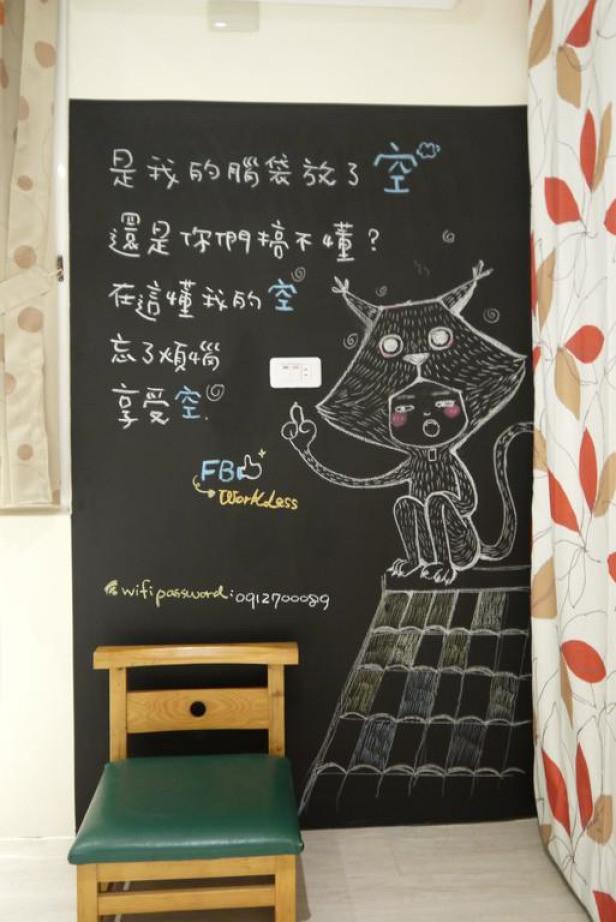 是我的腦袋放了空
還是你們搞不懂？
在這懂我的空
忘了煩惱
享受空.
FB
WorkLess
wifi password: 0912700089